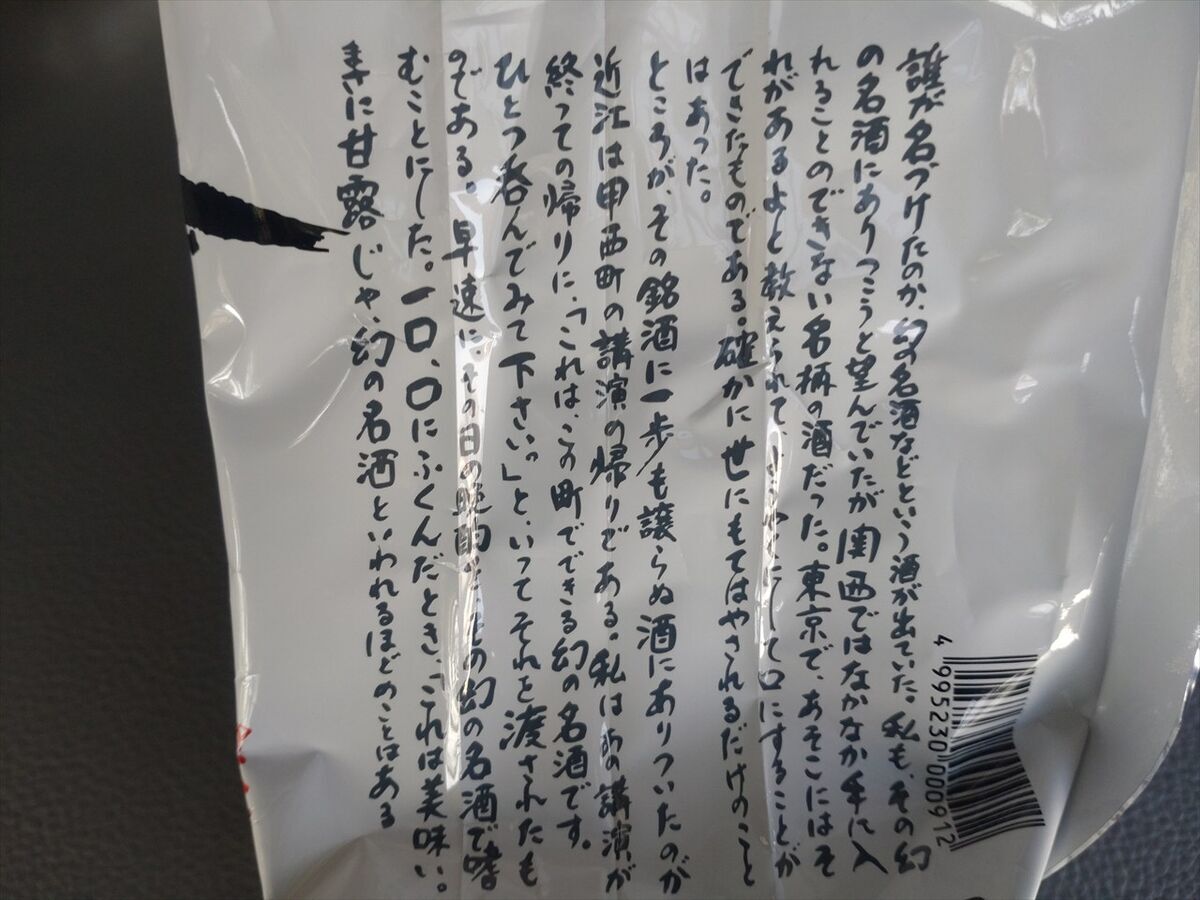 誰が名づけたのか、幻の名酒などという酒が出ていた。私も、その幻
の名酒にありつこうと望んでいたが関西ではなかなか手に入
れることのできない名柄の酒だった。東京で、あそこにはそ
れがあるよと教えられて、にして口にすることが
できたものである。確かに世にもてはやされるだけのこと
はあった。
ところが、その銘酒に一歩も譲らぬ酒にありついたのが
近江は甲西町の講演の帰りである。私はあの講演が
終っての帰りに、「これは、この町でできる幻の名酒です。
ひとつ呑んでみて下さい。」といってそれを渡されたも
のである。早速に、その日の晩酌の幻の名酒で嗜
むことにした。一口、口にふくんだとき、これは美味い。
まさに甘露じゃ、幻の名酒といわれるほどのことはある
4 995230 000912